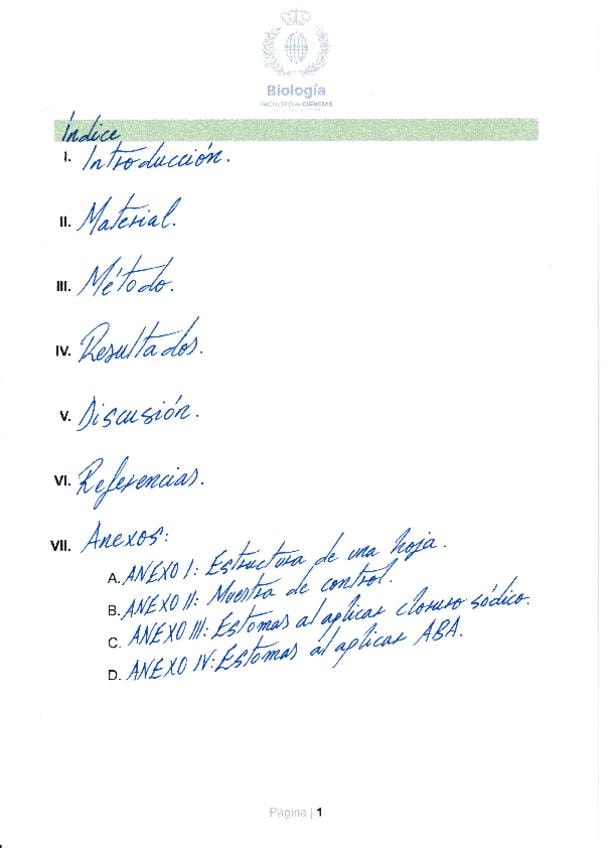 Biología
FACULTAD DE CIENCIAS
Índice
I. Introducción.
II. Material.
III. Método.
IV. Resultados.
V. Discusión.
VI. Referencias.
VII. Anexos:
A. ANEXO I: Estructura de una hoja.
B. ANEXO II: Muestra de control.
C. ANEXO III: Estomas al aplicar cloruro sódico.
D. ANEXO IV: Estomas al aplicar ABA.
Página | 1